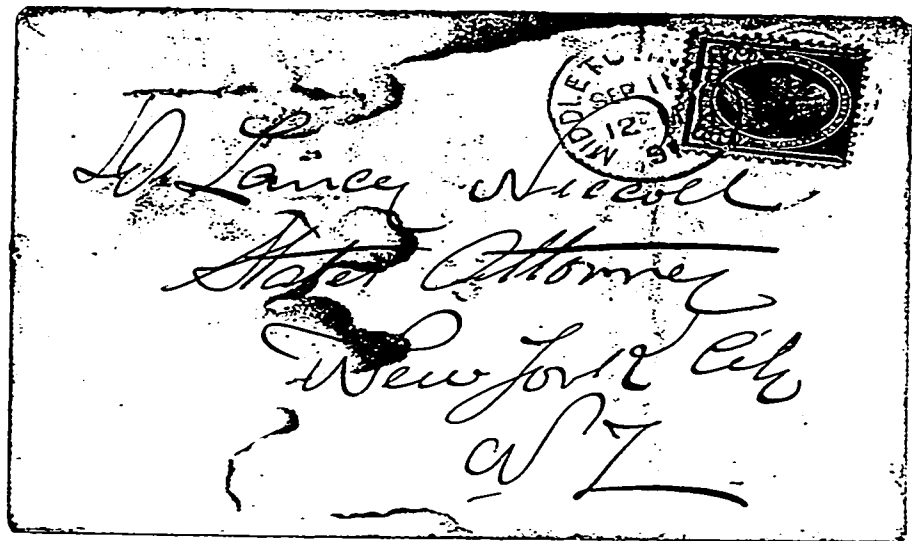 MIDDLETOWN
SEP 11
12
91
De Lancey Niccoll
States Attorney
New York City
N Y